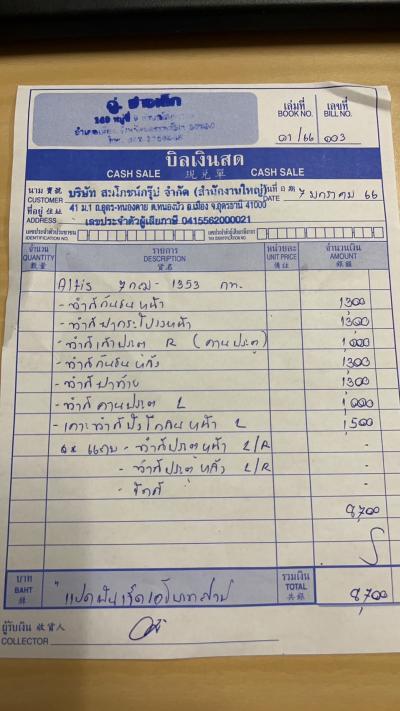 อู่ ช่างเล็ก
เล่มที่ เลขที่
BOOK NO. BILL NO.
01/66 003
บิลเงินสด
CASH SALE 現兌單 CASH SALE
นาม 寶號 บริษัท สมโภชน์กรุ๊ป จำกัด (สำนักงานใหญ่) วันที่ 日期 7 มกราคม 66
CUSTOMER
ที่อยู่ 住址 41 ม.1 ถ.อุดร-หนองคาย ต.หนองบัว อ.เมือง จ.อุดรธานี 41000
ADDRESS เลขประจำตัวผู้เสียภาษี 0415562000021
เลขประจำตัวประชาชน เลขประจำตัวผู้เสียภาษีอากร
IDENTIFICATION NO. TAX IDENTIFICATION NO.
จำนวน รายการ หน่วยละ จำนวนเงิน
QUANTITY DESCRIPTION UNIT PRICE AMOUNT
數量 貨名 價註 銀額
Altis 1353 กท.
- ทำสีกันชนหน้า 1300
- ทำสีฝากระโปรงหน้า 1300
- ทำสี R 1000
- ทำสีกันชนหลัง 1300
- ทำสีฝาท้าย 1300
- ทำสี L 1000
- เคาะทำสี หน้า L 1500
- ทำสีประตูหน้า L/R -
- ทำสีประตูหลัง L/R -
- ขัดสี -
8,700
บาท รวมเงิน
BAHT แปดพันเจ็ดร้อยบาทถ้วน TOTAL 8,700
銖 共銀
ผู้รับเงิน 收貨人
COLLECTOR